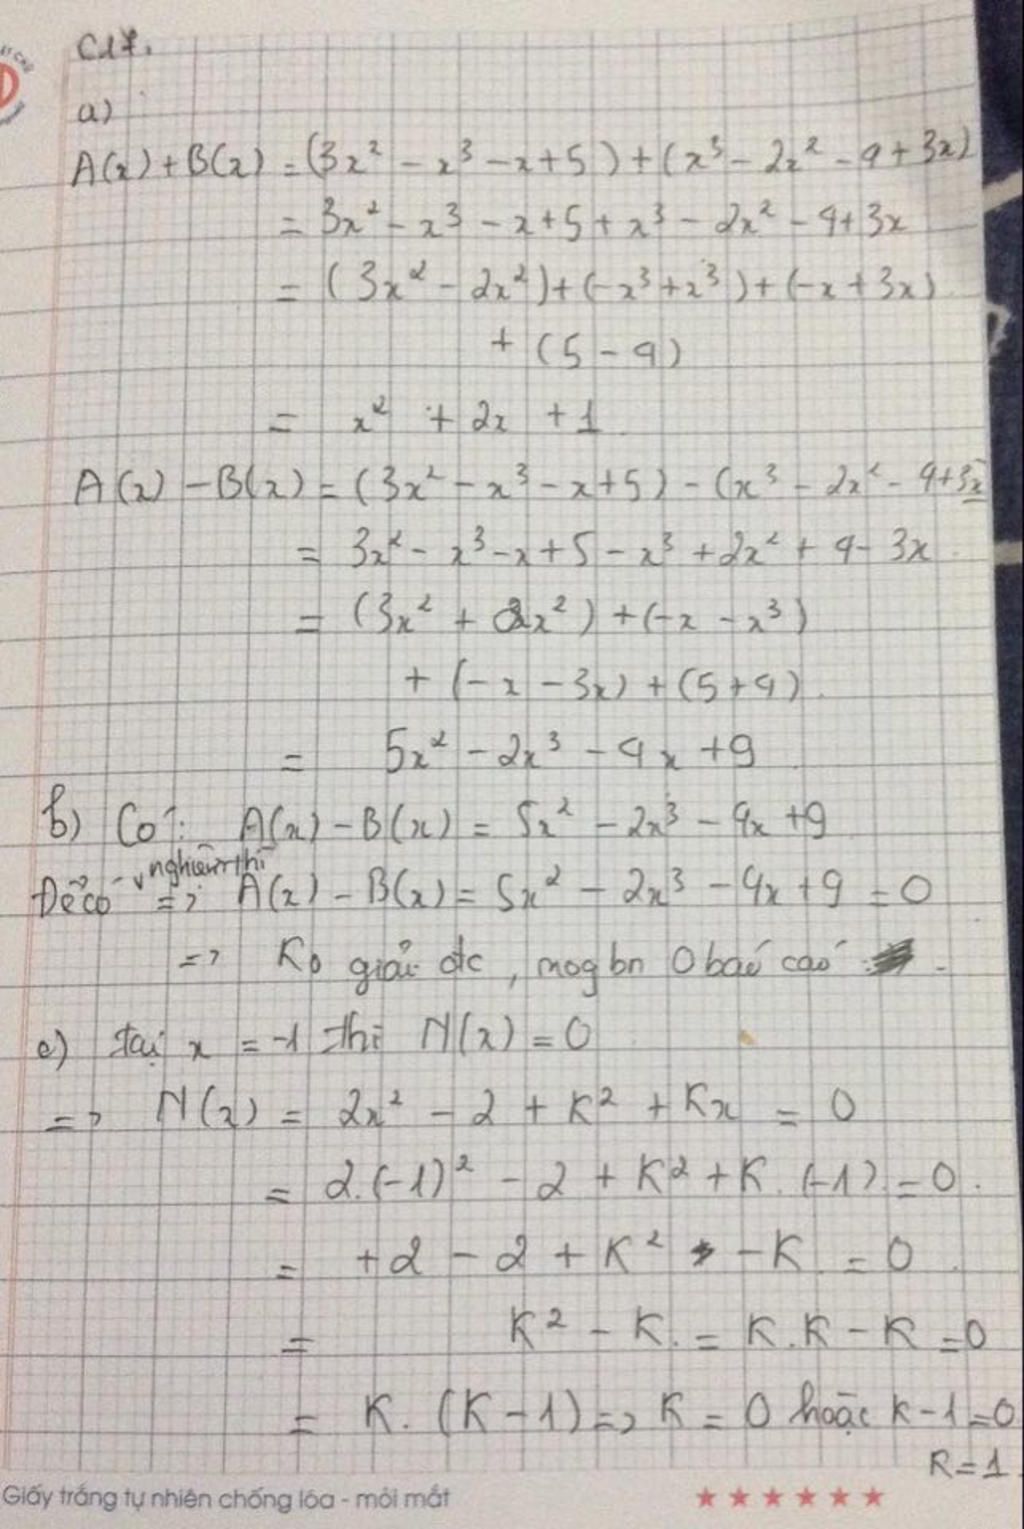 C17.
a)
A(x) + B(x) = (3x² - x³ - x + 5) + (x³ - 2x² - 4 + 3x)
= 3x² - x³ - x + 5 + x³ - 2x² - 4 + 3x
= (3x² - 2x²) + (-x³ + x³) + (-x + 3x)
+ (5 - 4)
= x² + 2x + 1
A(x) - B(x) = (3x² - x³ - x + 5) - (x³ - 2x² - 4 + 3x
= 3x² - x³ - x + 5 - x³ + 2x² + 4 - 3x
= (3x² + 2x²) + (-x - x³)
+ (-x - 3x) + (5 + 4)
= 5x² - 2x³ - 4x + 9
b) Có: A(x) - B(x) = 5x² - 2x³ - 4x + 9
nghiệm thì
Để có => A(x) - B(x) = 5x² - 2x³ - 4x + 9 = 0
=> Ko giải đc, mog bn 0 báo cáo.
c) tại x = -1 thì N(x) = 0
=> N(x) = 2x² - 2 + K² + Kx = 0
= 2.(-1)² - 2 + K² + K.(-1) = 0.
= +2 - 2 + K² - K = 0.
= K² - K. = K.K - K = 0
= K.(K - 1) => K = 0 hoặc K - 1 = 0
K = 1.
Giấy trắng tự nhiên chống lóa - mỏi mắt